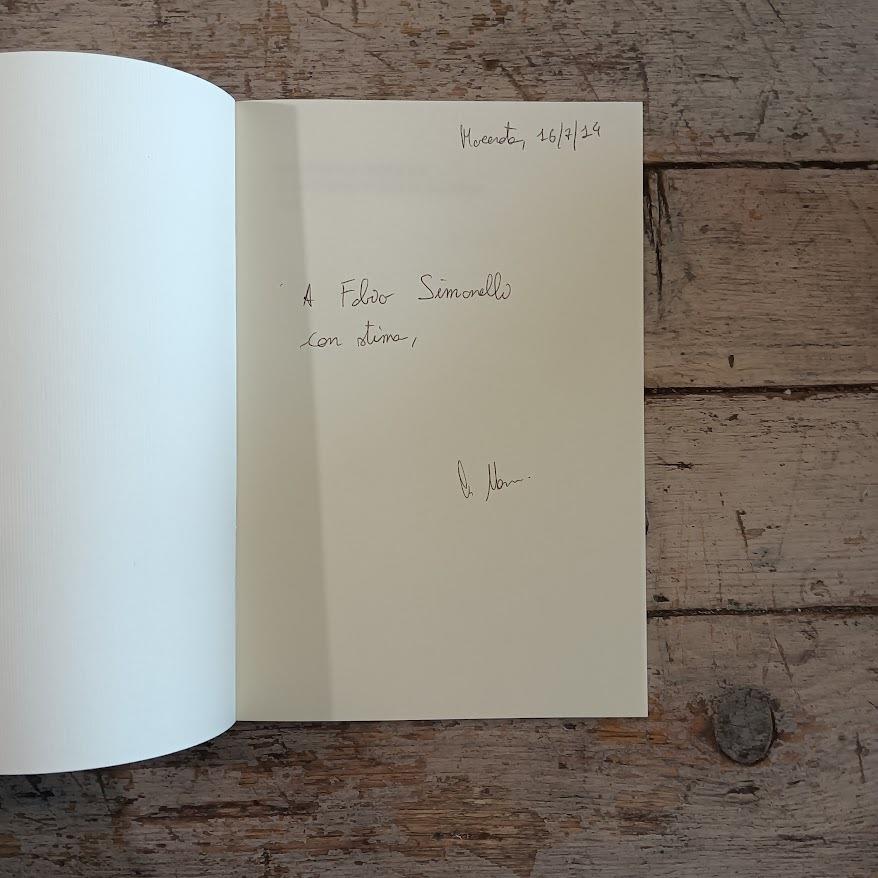 Macerata, 16/7/14
A Fabio Simonello
con stima,